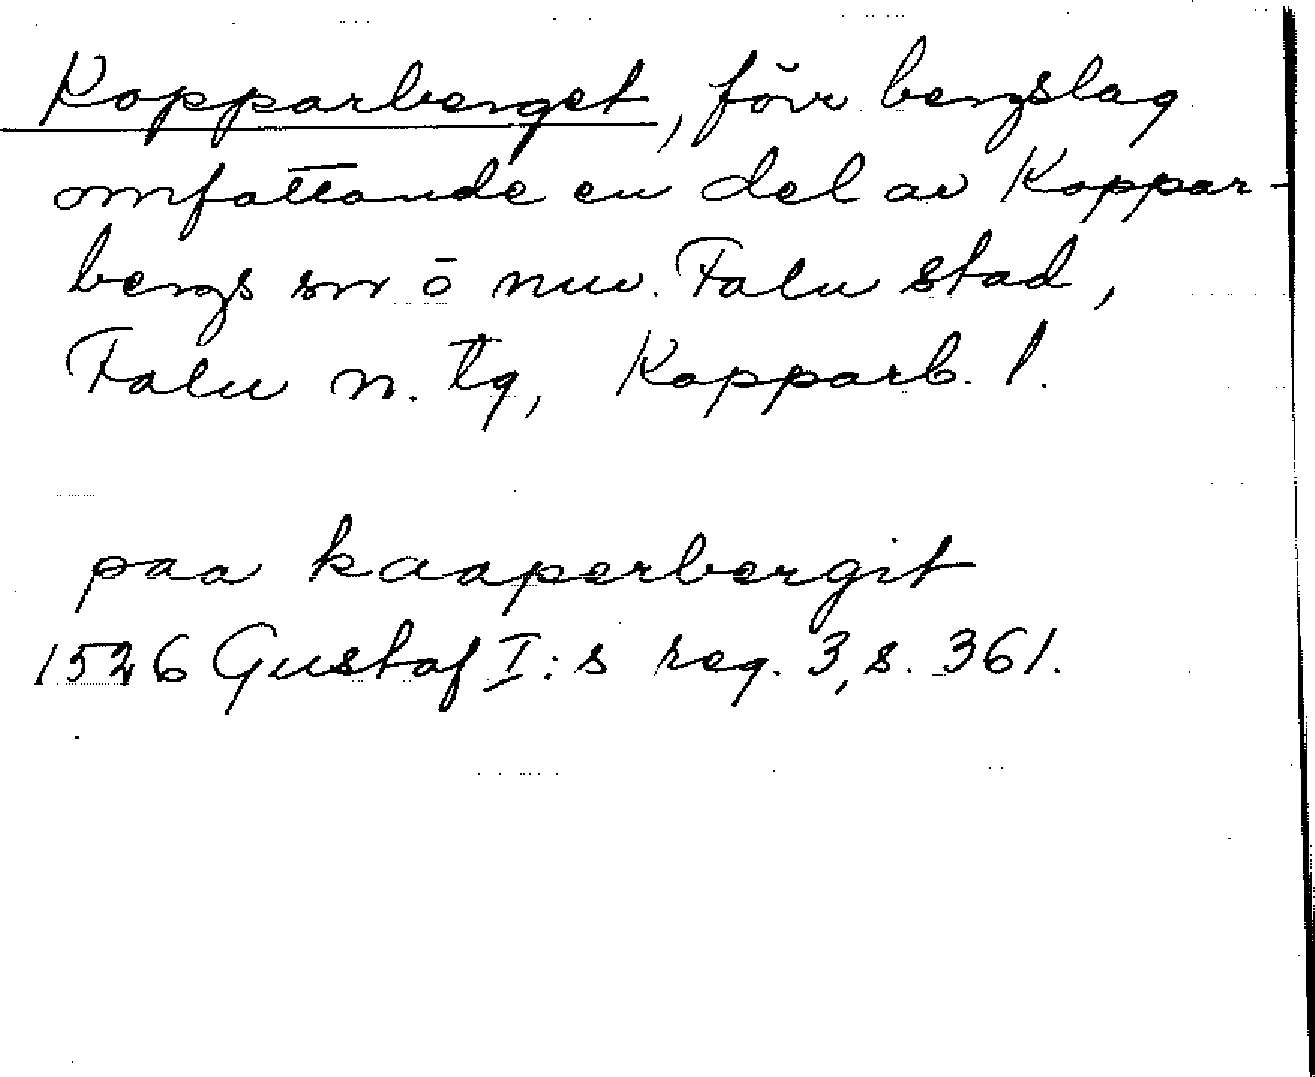 Kopparberget, förr bergslag
omfattande en del av Koppar-
bergs sn o nuv. Falu stad,
Falu n. tg, Kopparb. l.
paa kaaperbergit
1526 Gustaf I:s reg. 3, s. 361.